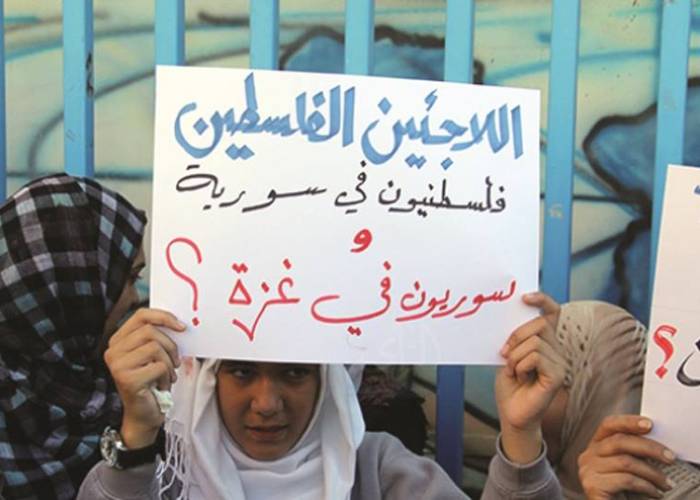 اللاجئين الفلسطين
فلسطنيون في سورية
و
سوريون في غزة ؟
؟